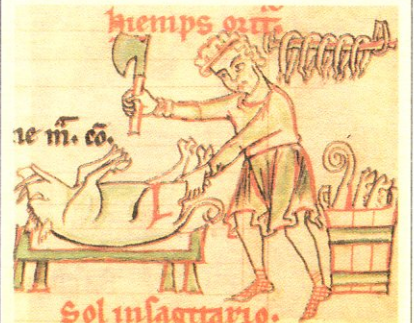 hiemps orit̃.
ıe m̃. eõ.
Sol in sagittario.